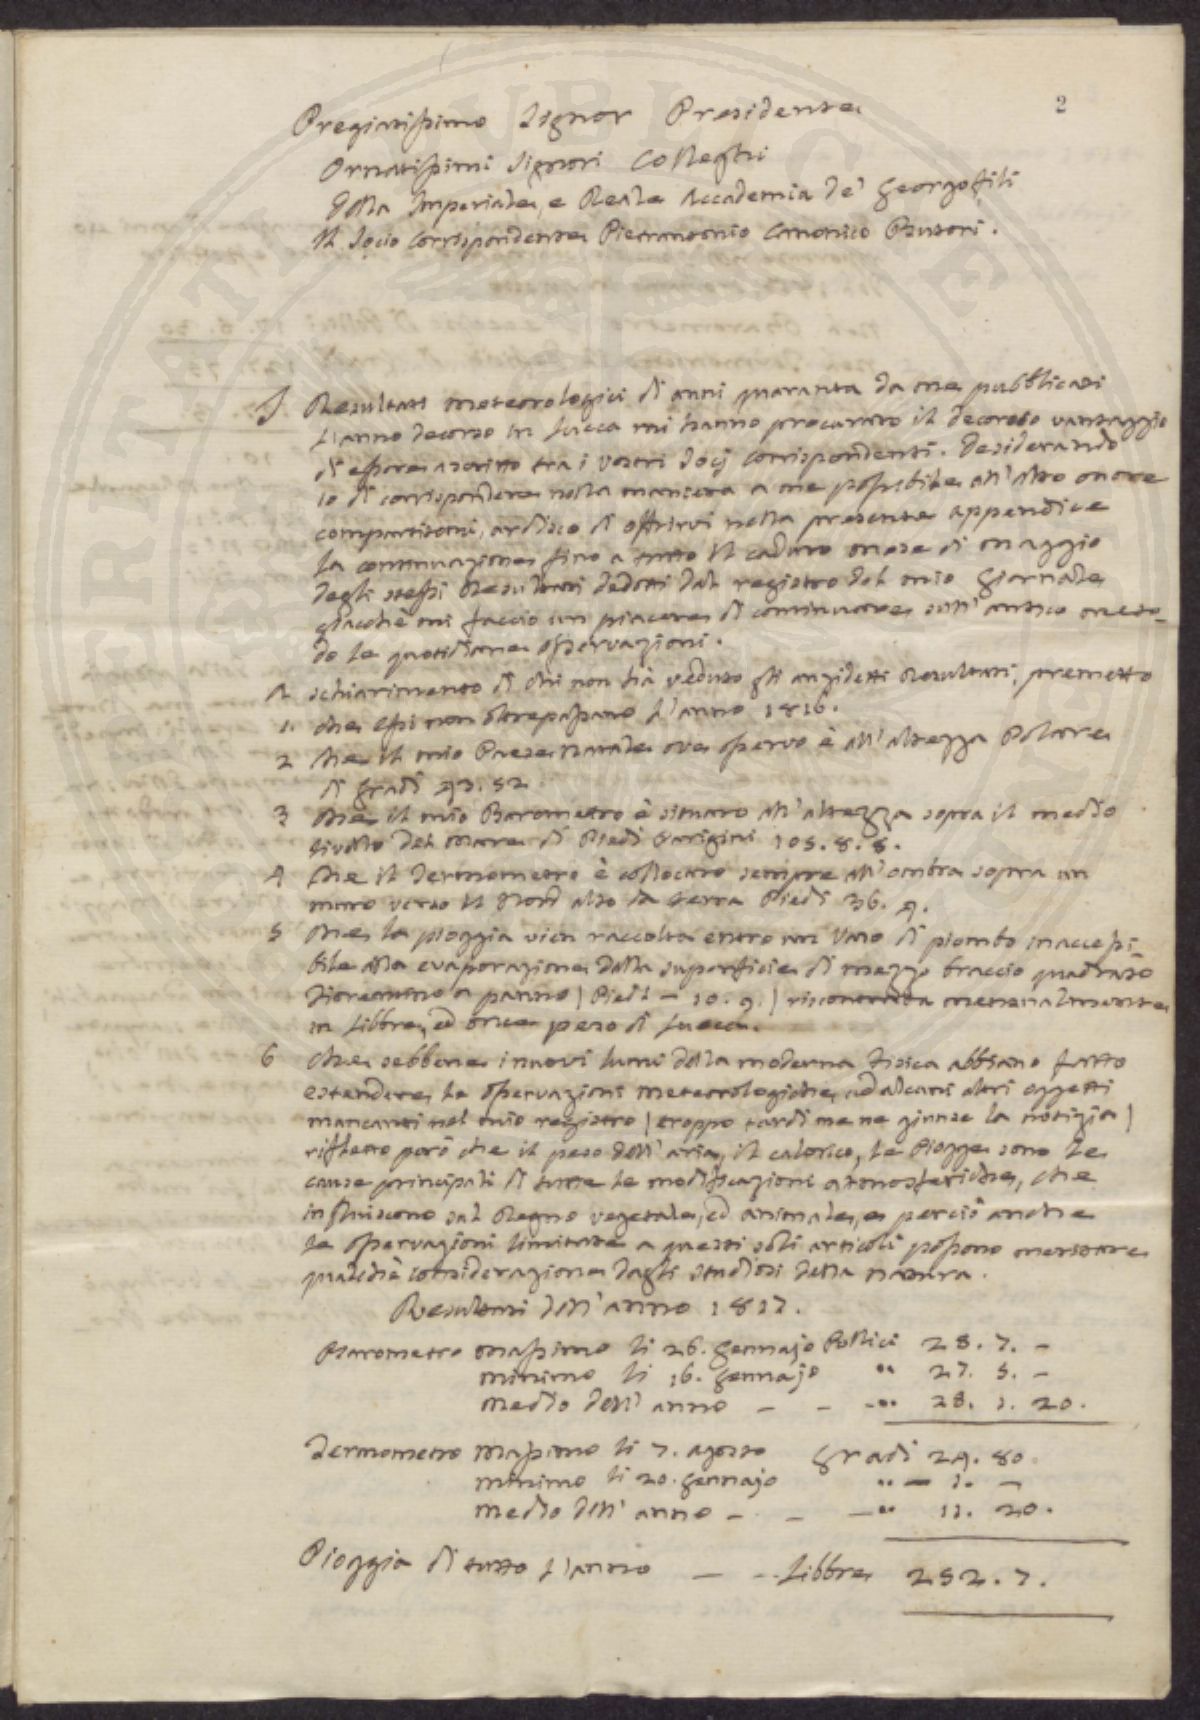 2
Pregiatissimo Signor Presidente
Ornatissimi Signori Colleghi
Della Imperiale, e Reale Accademia de' Georgofili
Il Socio Corrispondente Pierantonio Canonico Butori.
I Resultati meteorologici di anni quaranta da me pubblicati
l'anno decorso in Lucca mi hanno procurato il decoroso vantaggio
di essere ascritto tra i vostri Socj Corrispondenti. Desiderando
io di corrispondere nella maniera a me possibile all'alto onore
compartitomi, ardisco di offrirvi nella presente appendice
la continuazione fino a tutto il caduto mese di Maggio
degli stessi Resultati dedotti dal registro del mio Giornale
giacchè mi faccio un piacere di continuare sull'antico meto-
do le quotidiane osservazioni.
A schiarimento di chi non hà veduto gli anzidetti Resultati, premetto
1. che essi non oltrepassano l'anno 1816.
2 che il mio Paese Natale ove osservo è all'altezza Polare
di gradi 43.52
3 che il mio Barometro è situato all'altezza sopra il medio
livello del Mare di Piedi Parigini 105.8.8.
4 che il Termometro è collocato sempre all'ombra sopra un
muro verso il Nord alto da terra Piedi 36. 4.
5 che la pioggia vien raccolta entro un Vaso di piombo inaccessi-
bile alla evaporazione dalla superficie di mezzo braccio quadrato
Fiorentino a panno (Piedi - 10. 9.) riscontrata mensualmente
in Libbre, ed once peso di Lucca.
6 che sebbene i nuovi lumi della moderna Fisica abbiano fatto
estendere le osservazioni meteorologiche ad alcuni altri oggetti
mancanti nel mio registro (troppo tardi me ne giunse la notizia)
rifletto però che il peso dell'aria, il calorico, le Piogge sono le
cause principali di tutte le modificazioni atmosferiche, che
influiscono sul Regno vegetale, ed animale, e perciò anche
le osservazioni limitate a questi soli articoli possono meritare
qualche considerazione dagli studiosi della natura.
Resultati dell'anno 1817.
Barometro massimo li 26. Gennajo Pollici 28. 7. -
minimo li 16. Gennajo " 27. 5. -
medio dell'anno - - - " 28. 1. 20.
Termometro massimo li 7. agosto Gradi 24. 80.
minimo li 20. Gennajo " - 1. -
medio dell'anno - - - " 11. 20.
Pioggia di tutto l'anno - - Libbre 252. 7.